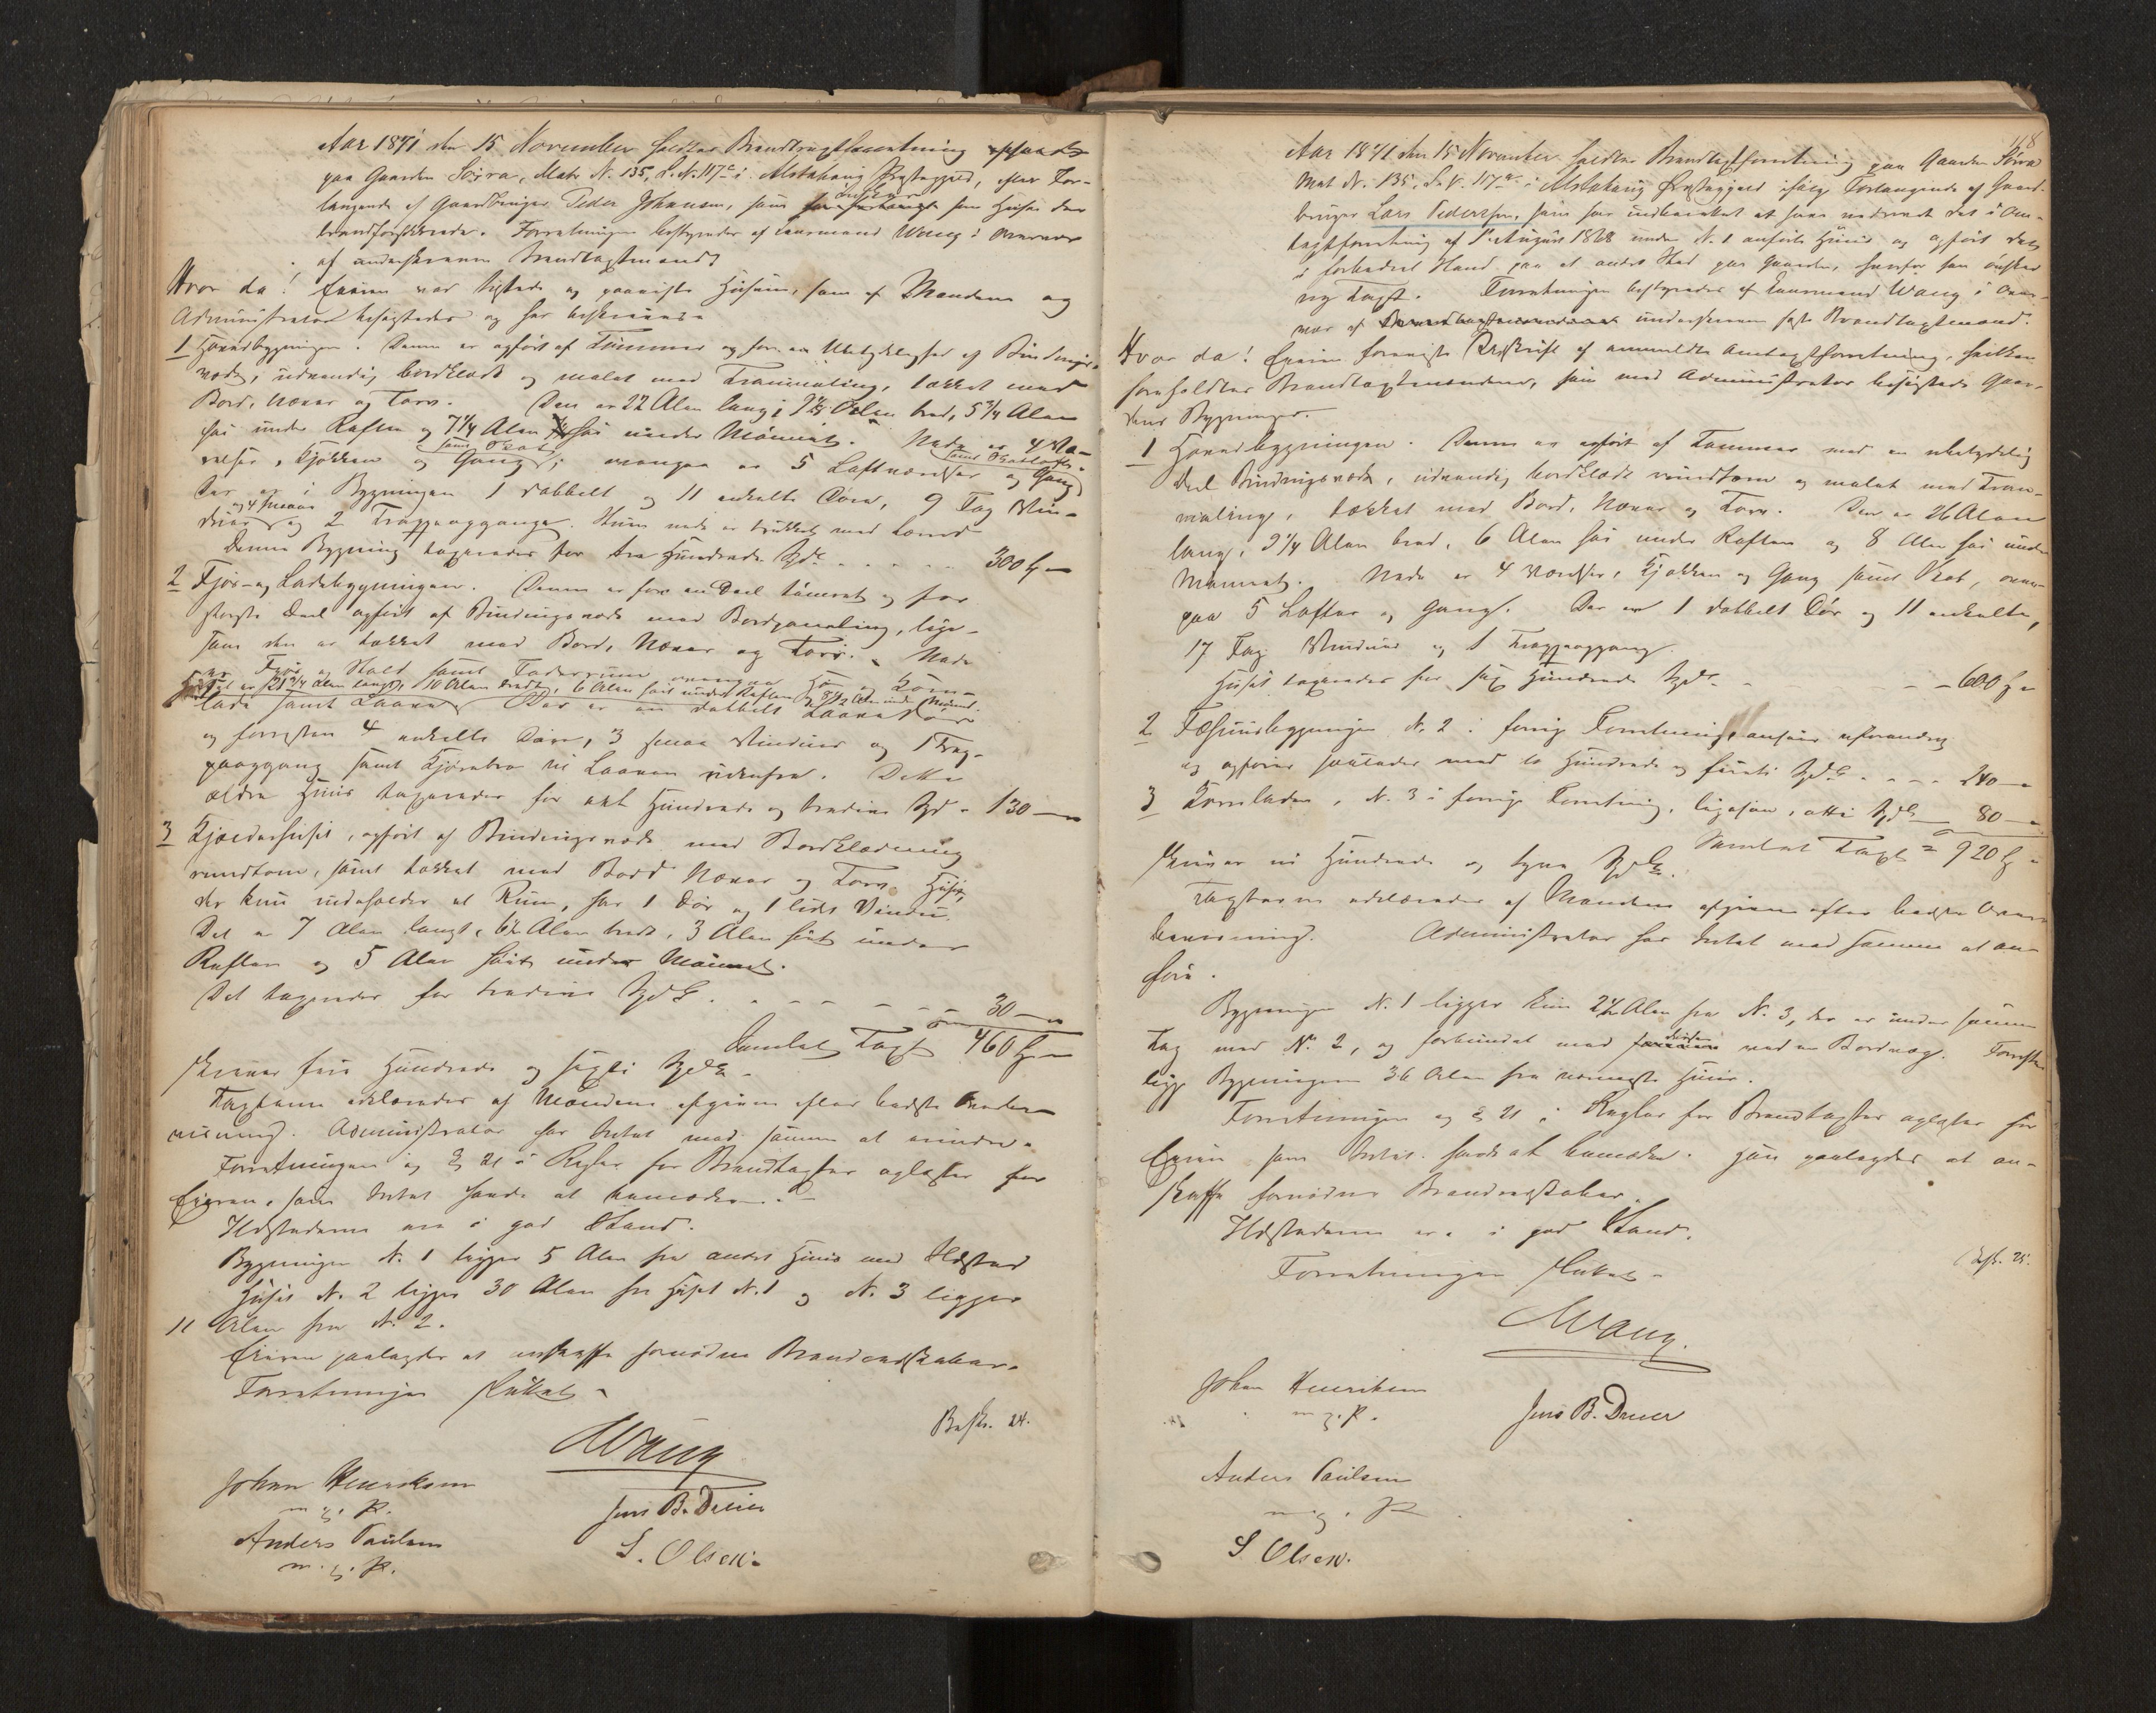 Aar 1871 den 15 November holdtes Brandtaxtforretning
paa Gaarden Søvra, Matr N. 135, L.N. 117c i Alstahaug Præstegjeld, efter For-
langende af Gaardbruger Peder Johansen, som ønsker sine Huse der
brandforsikrede. Forretningen bestyredes af Lensmand Wang i Overvær
af underskrevne Brandtaxtmænd
Hvor da! Eieren var tilstede og paaviste Husene, som af Mændene og
Administrator besigtedes og her beskrives.
1 Hovedbygningen. Denne er opført af Tømmer og for en Ubetydelighed af Bindings-
værk, udvendig bordklædt og malet med Tranmaling, takket med
Bord, Næver og Torv. Den er 22 Alen lang, 9 1/2 Alen bred, 5 3/4 Alen
høi under Raften og 7 1/4 Alen høi under Mønnet. Nede er 4 Væ-
relser, Kjøkken og Gang samt Skab; ovenpaa er 5 Loftværelser og Gang
Der er i Bygningen 1 dobbelt og 11 enkelte Døre, 9 Fag Vin-
duer og 4 smaae og 2 Trappeopgange.
Denne Bygning taxeredes for tre Hundrede Spd. . . . . 300 Spd
2 Fjøs- og Ladebygningen. Denne er for en Deel tømret og for
største Deel opført af Bindingsværk med Bordpaneling, lige-
som den er takket med Bord, Næver og Torv. Nede
er Fjøs og Stald samt Foderrum ovenpaa Hø og Korn-
Huset er 21 3/4 Alen langt, 10 Alen bredt, 6 Alen høit under Raften og 8 1/2 Alen under Mønnet.
lade samt Laave. Der er en dobbelt Laavedør
og forresten 4 enkelte Døre, 3 smaa Vinduer og 1 Trap-
peopgang samt Kjørebro til Laaven udenfra. Dette
ældre Huus taxeredes for et Hundrede og tredive Spd - 130 -
3 Kjælderhuset, opført af Bindingsværk med Bordklædning
rundtom, samt takket med Bord Næver og Torv. Huset,
der kun indeholder et Rum, har 1 Dør og 1 lidet Vindu.
Det er 7 Alen langt, 6 1/2 Alen bredt, 3 Alen høit under
Raften og 5 Alen høit under Mønnet.
Det taxeredes for tredive Spd. . - - - - 30 -
Samlet Taxt 460 Spd
skriver fire Hundrede og sexti Spd.
Taxterne erklæredes af Mændene afgivne efter bedste Overbe-
viisning. Administrator har Intet mod samme at erindre.
Forretningen og § 21 i Regler for Brandtaxter oplæstes for
Eieren, som Intet havde at bemærke.
Ildstederne ere i god Stand.
Bygningen N. 1 ligger 5 Alen fra andet Huus med Ildsted
Huset N. 2 ligger 30 Alen fra Huset N. 1 og N. 3 ligger
11 Alen fra N. 2.
Eieren paalagdes at anskaffe fornødne Brandredskaber.
Forretningen sluttet
Besk. 24.
Wang
Johan Henriksen
m. p. P.
Jens B. Dreier
Anders Paulsen
m. p. P.
S. Olsen.
118
Aar 1871 den 15 November holdtes Brandtaxtforretning paa Gaarden Søvra
Mat N. 135. L.N. 117 i Alstahaug Præstegjeld ifølge Forlangende af Gaard-
bruger Lars Pedersen, som har indberettet at have nedrevet det i Om-
taxtforretning af 1ste August 1868 under N. 1 anførte Huus og opført det
i forbedret Stand paa et andet Sted paa Gaarden, hvorfor han ønsker
ny Taxt. Forretningen bestyredes af Lensmand Wang i Over-
vær af underskrevne faste Brandtaxtmænd.
Hvor da! Eieren foreviste Udskrift af anmeldte Omtaxtforretning, hvilken
foreholdtes Brandtaxtmændene, som med Administrator besigtede Gaar-
dens Bygninger.
1 Hovedbygningen. Denne er opført af Tømmer med en ubetydelig
Deel Bindingsværk, udvendig bordklædt rundtom og malet med Tran-
maling, takket med Bord, Næver og Torv. Den er 26 Alen
lang, 9 1/4 Alen bred, 6 Alen høi under Raften og 8 Alen høi under
Mønnet. Nede er 4 Værelser, Kjøkken og Gang samt Skab, oven-
paa 5 Lofter og Gang. Der er 1 dobbelt Dør og 11 enkelte,
17 Fag Vinduer og 1 Trappeopgang.
Huset taxeredes for sex Hundrede Spd. - - - 600 Spd
2 Fæhuusbygningen N. 2 i forrige Forretning, ansees uforandret
og opføres saaledes med to Hundrede og firti Spd. - - - 240 -
3 Kornladen, N. 3 i forrige Forretning, ligesaa, otti Spd - 80 -
Samlet Taxt = 920 Spd
skriver ni Hundrede og tyve Spd.
Taxterne erklæredes af Mændene afgivne efter bedste Over-
beviisning. Administrator har Intet mod samme at an-
føre.
Bygningen N. 1 ligger kun 24 Alen fra N. 3, der er under samme
Tag med N. 2, og forbundet med denne ved en Bordvæg. Forresten
ligger Bygningen 36 Alen fra nærmeste Huus.
Forretningen og § 21 i Regler for Brandtaxter oplæstes for
Eieren som Intet havde at bemærke. Han paalagdes at an-
skaffe fornødne Brandredskaber.
Ildstederne ere i god Stand.
Forretningen sluttet
Besk. 25.
Wang.
Johan Henriksen
m. p. P.
Jens B. Dreier
Anders Paulsen
m. p. P
S Olsen.